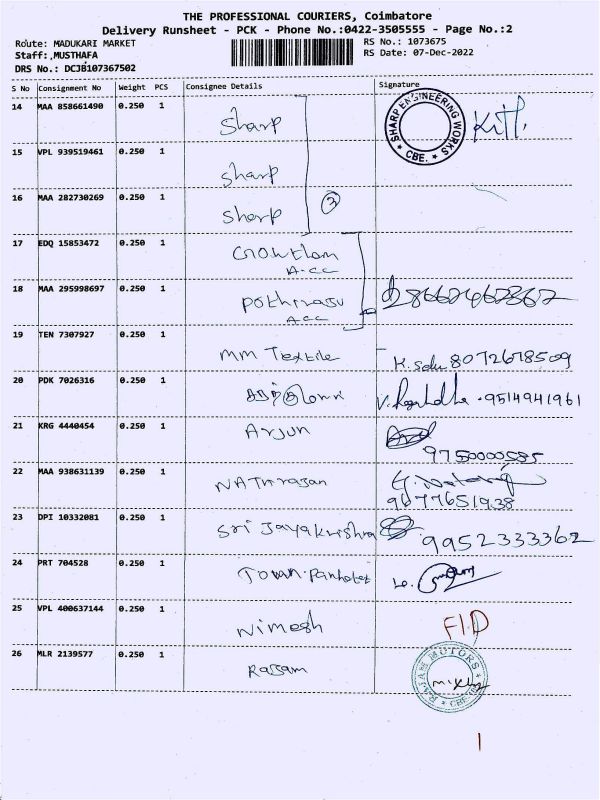 THE PROFESSIONAL COURIERS, Coimbatore
Delivery Runsheet - PCK - Phone No.:0422-3505555 - Page No.:2
Route: MADUKARI MARKET RS No.: 1073675
Staff: MUSTHAFA RS Date: 07-Dec-2022
DRS No.: DCJB107367502
S No Consignment No Weight PCS Consignee Details Signature
14 MAA 858661490 0.250 1 Sharp SHARP ENGINEERING WORKS * CBE. *
15 VPL 939519461 0.250 1 Sharp
16 MAA 282730269 0.250 1 Sharp
3
17 EDQ 15853472 0.250 1 Gowtham
A-CC
18 MAA 295998697 0.250 1 Pothirasu
ACC
19 TEN 7307927 0.250 1 MM Textile K. Selu 8072678509
20 PDK 7026316 0.250 1 V. 9514941961
21 KRG 4440454 0.250 1 Arjun
9750000585
22 MAA 938631139 0.250 1 NATHrajan
9677651938
23 DPI 10332081 0.250 1 Sri Jayakrishna 9952333362
24 PRT 704528 0.250 1 Town
25 VPL 400637144 0.250 1 Nimesh FID
26 MLR 2139577 0.250 1 Rajam RAJAM MOTORS * CBE
1